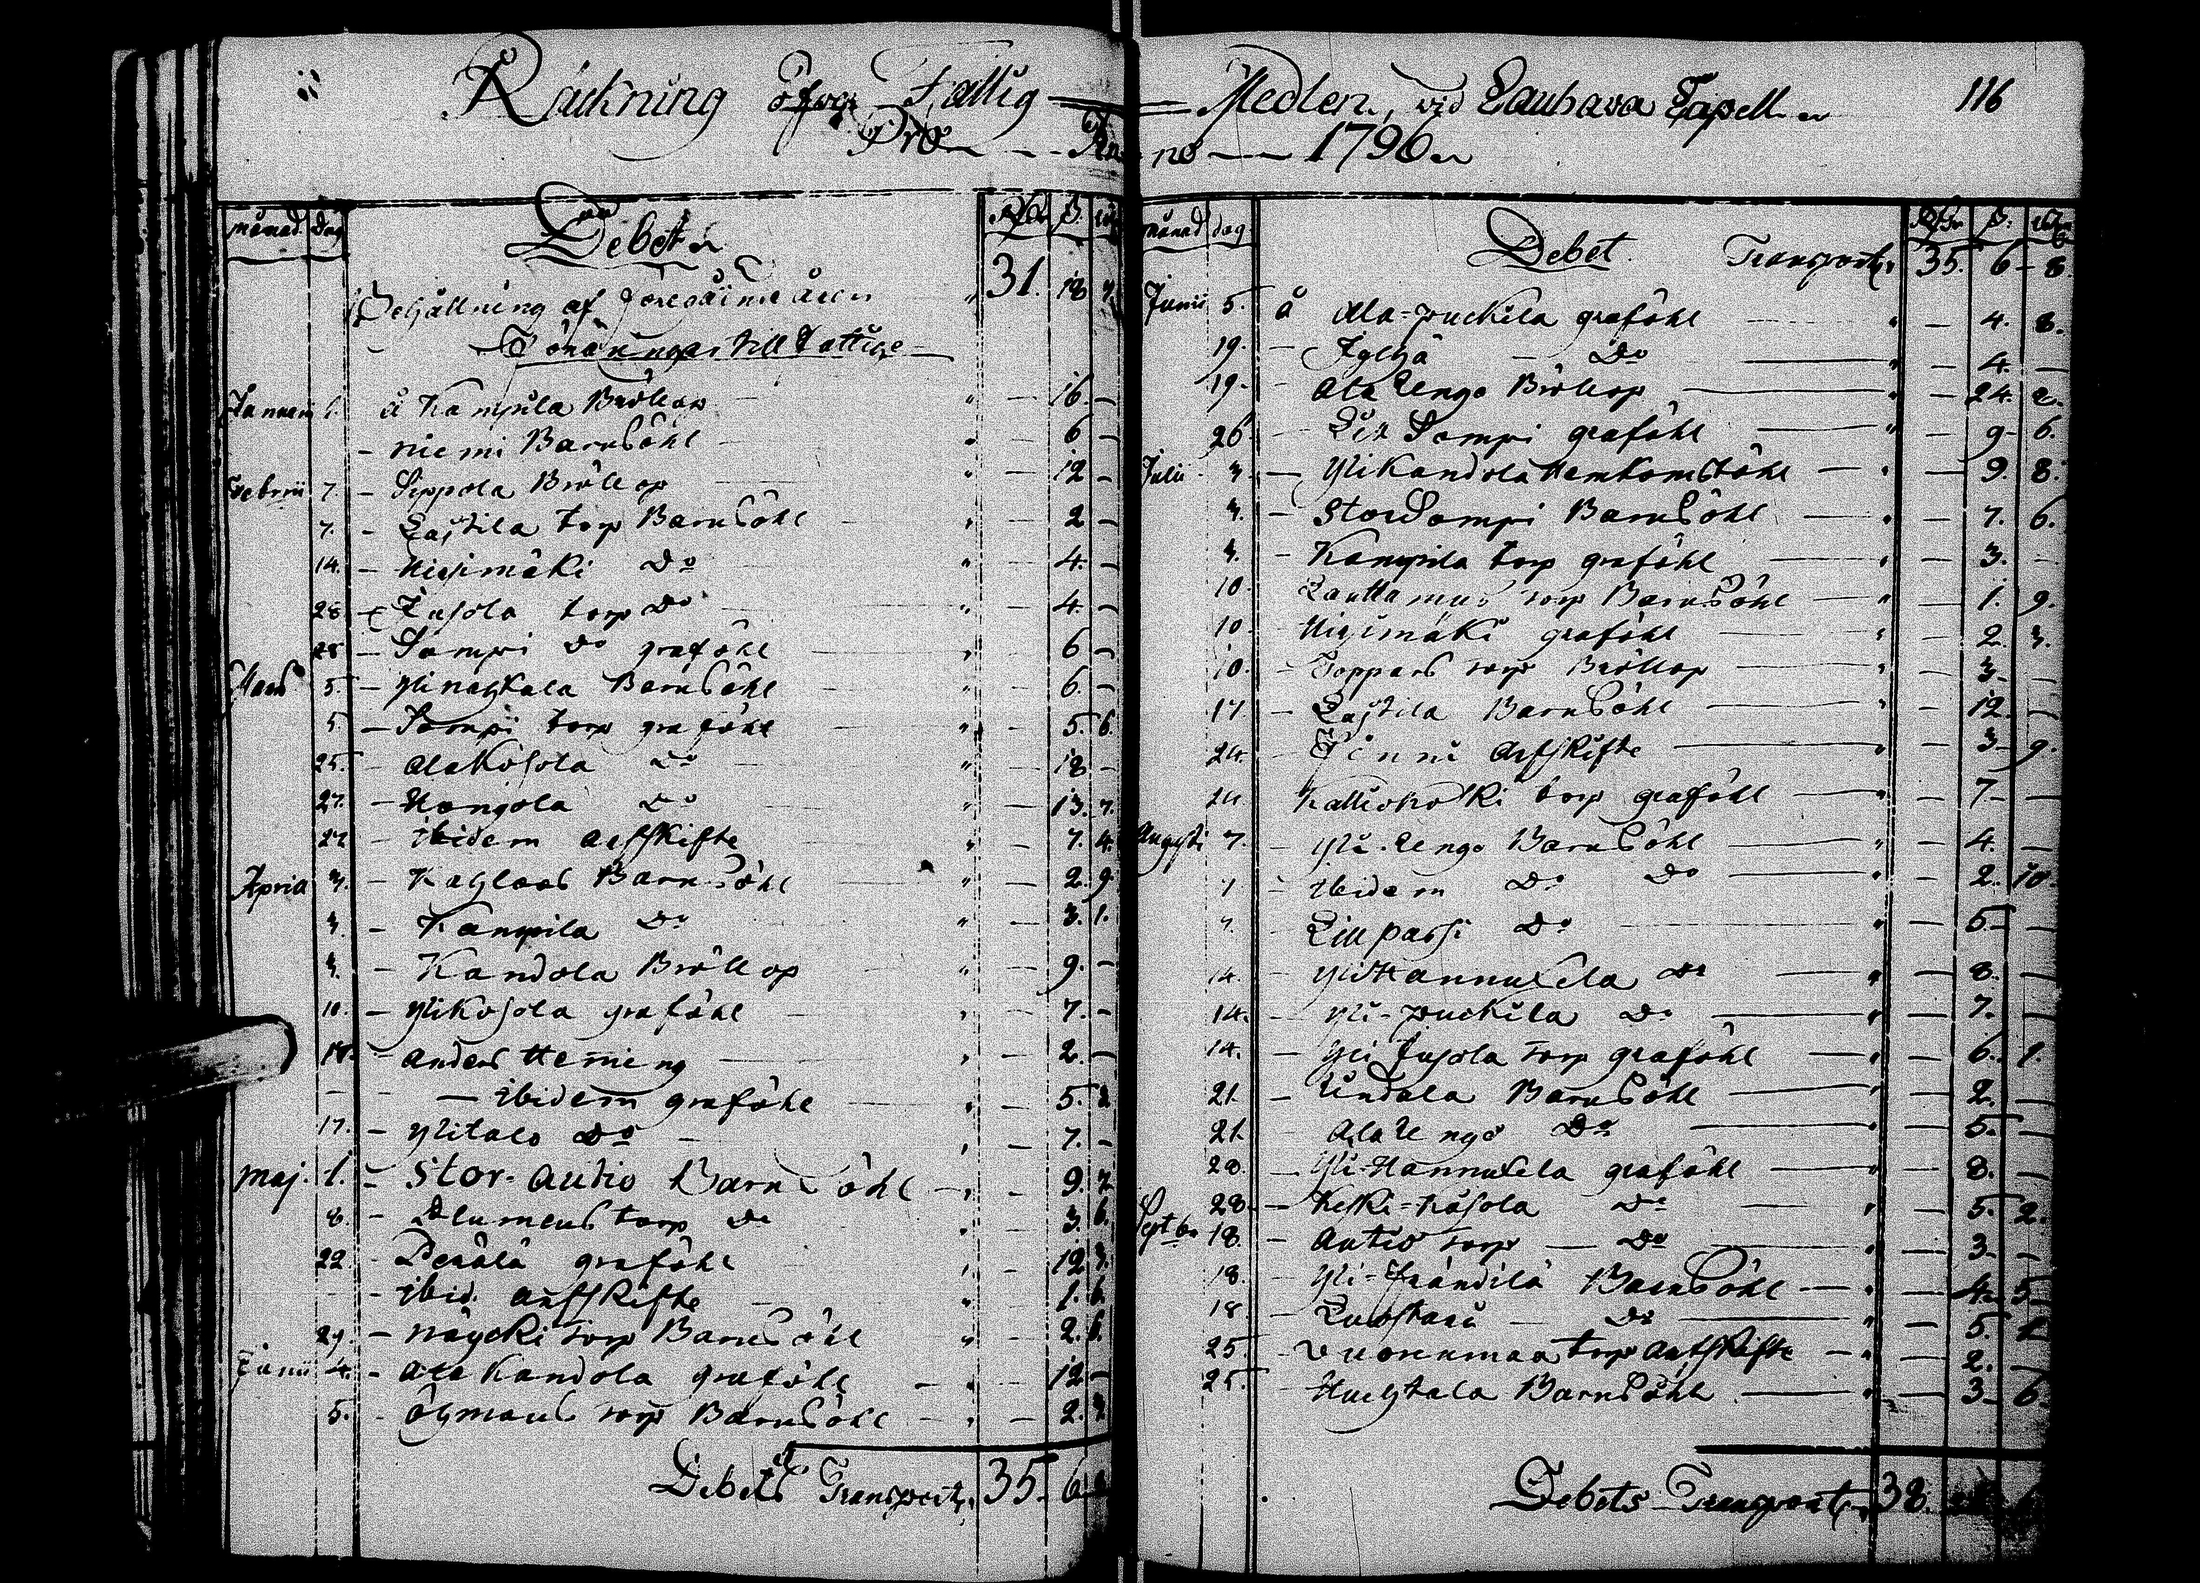 Räckning öfwer Fattig Medlen, wid Lauhawa Capell 116
Pro Anno 1796
månad Dag Debet Rdr ß. rst
Behållning af föregående åren 31. 18
Gåfwor till Fattige
Januarii 6. å Kampila Bröllop 16. —
— niemi Barnsöhl 6 —
Februarii 7 — Sippola Bröllop 12 —
7. — Lassila torp Barnsöhl 2 —
14. — Hirsimäki Do 4. —
28 — Jusola torp Do 4. —
28 — Sampi Do graföhl 6 —
Mars 5. — Ylinaykala Barnsöhl 6. —
5. — Sampi torp graföhl 5. 6.
25. — Alakosola Do 18 —
27. — Hangola Do 13. 7.
27 — ibidem arfskifte 7. 4.
April 3. — Kaglars Barnsöhl 2. 9.
3. — Kampila Do 3. 1.
3. — Kandola Bröllop 9. —
10. — Ylikosola graföhl 7. —
17. — Anders Heming 2. —
— ibidem graföhl 5. 2
17. — Ylitalo Do 7. —
Maj 1. — Stor-Autio Barnsöhl 9. 7.
8. — torp Do 3. 6.
22 — Perälä graföhl 12. 3.
ibid. arfskifte 1. 6.
29. — näycki torp Barnsöhl 2. 6.
Junii 4. — Ala Kandola graföhl 12 —
5. — Öhmans torp Barnsöhl 2. 3
Debets Transport 35. 6.
månad dag Debet Transport 35. 6 — 8.
Rdr ß. rst
Junii 5. å Ala-puckila graföhl — 4. 8.
19. — Jylhä — Do — 4. —
19. — Ala Rengo Bröllop — 24. 2.
26 — Lill Sampi graföhl — 9. 6.
Julii 3. — Ylikandola Hemkomstöhl — 9. 8.
3. — Stor Sampi Barnsöhl — 7. 6.
3. — Kampila torp graföhl — 3. —
10. Lauttamus torp Barnsöhl — 1. 9.
10 — Hirsimäki graföhl — 2. 3.
10. — Toppars torp Bröllop — 3. —
17. — Lassila Barnsöhl — 12. —
24. — Finni arfskifte — 3. 9.
24 Kalliokoski torp graföhl — 7. —
Augusti 7. — Yli-Rengo Barnsöhl — 4. —
7 — ibidem Do Do — 2. 10.
7. — Lillpassi Do — 5. —
14. — Ylihannuxela Do — 8. —
14. — Yli-puckila Do — 7. —
14. — Yli Jusola torp graföhl — 6. 1.
21. — Lindala Barnsöhl — 2. —
21. — Ala Rengo Do — 5. —
28. — Yli-Hannuxela graföhl — 8. —
28. — Keski-Kosola Do — 5. 2.
Septbr 18. — Autio torp — Do — 3. —
18. — Yli-Frändilä Barnsöhl — 4. 5
18 — Luostari — Do — 5. 1
25. — Vuorenmaa torp arfskifte — 2. —
25. — Huhtala Barnsöhl — 3. 6.
Debets Transport 38.